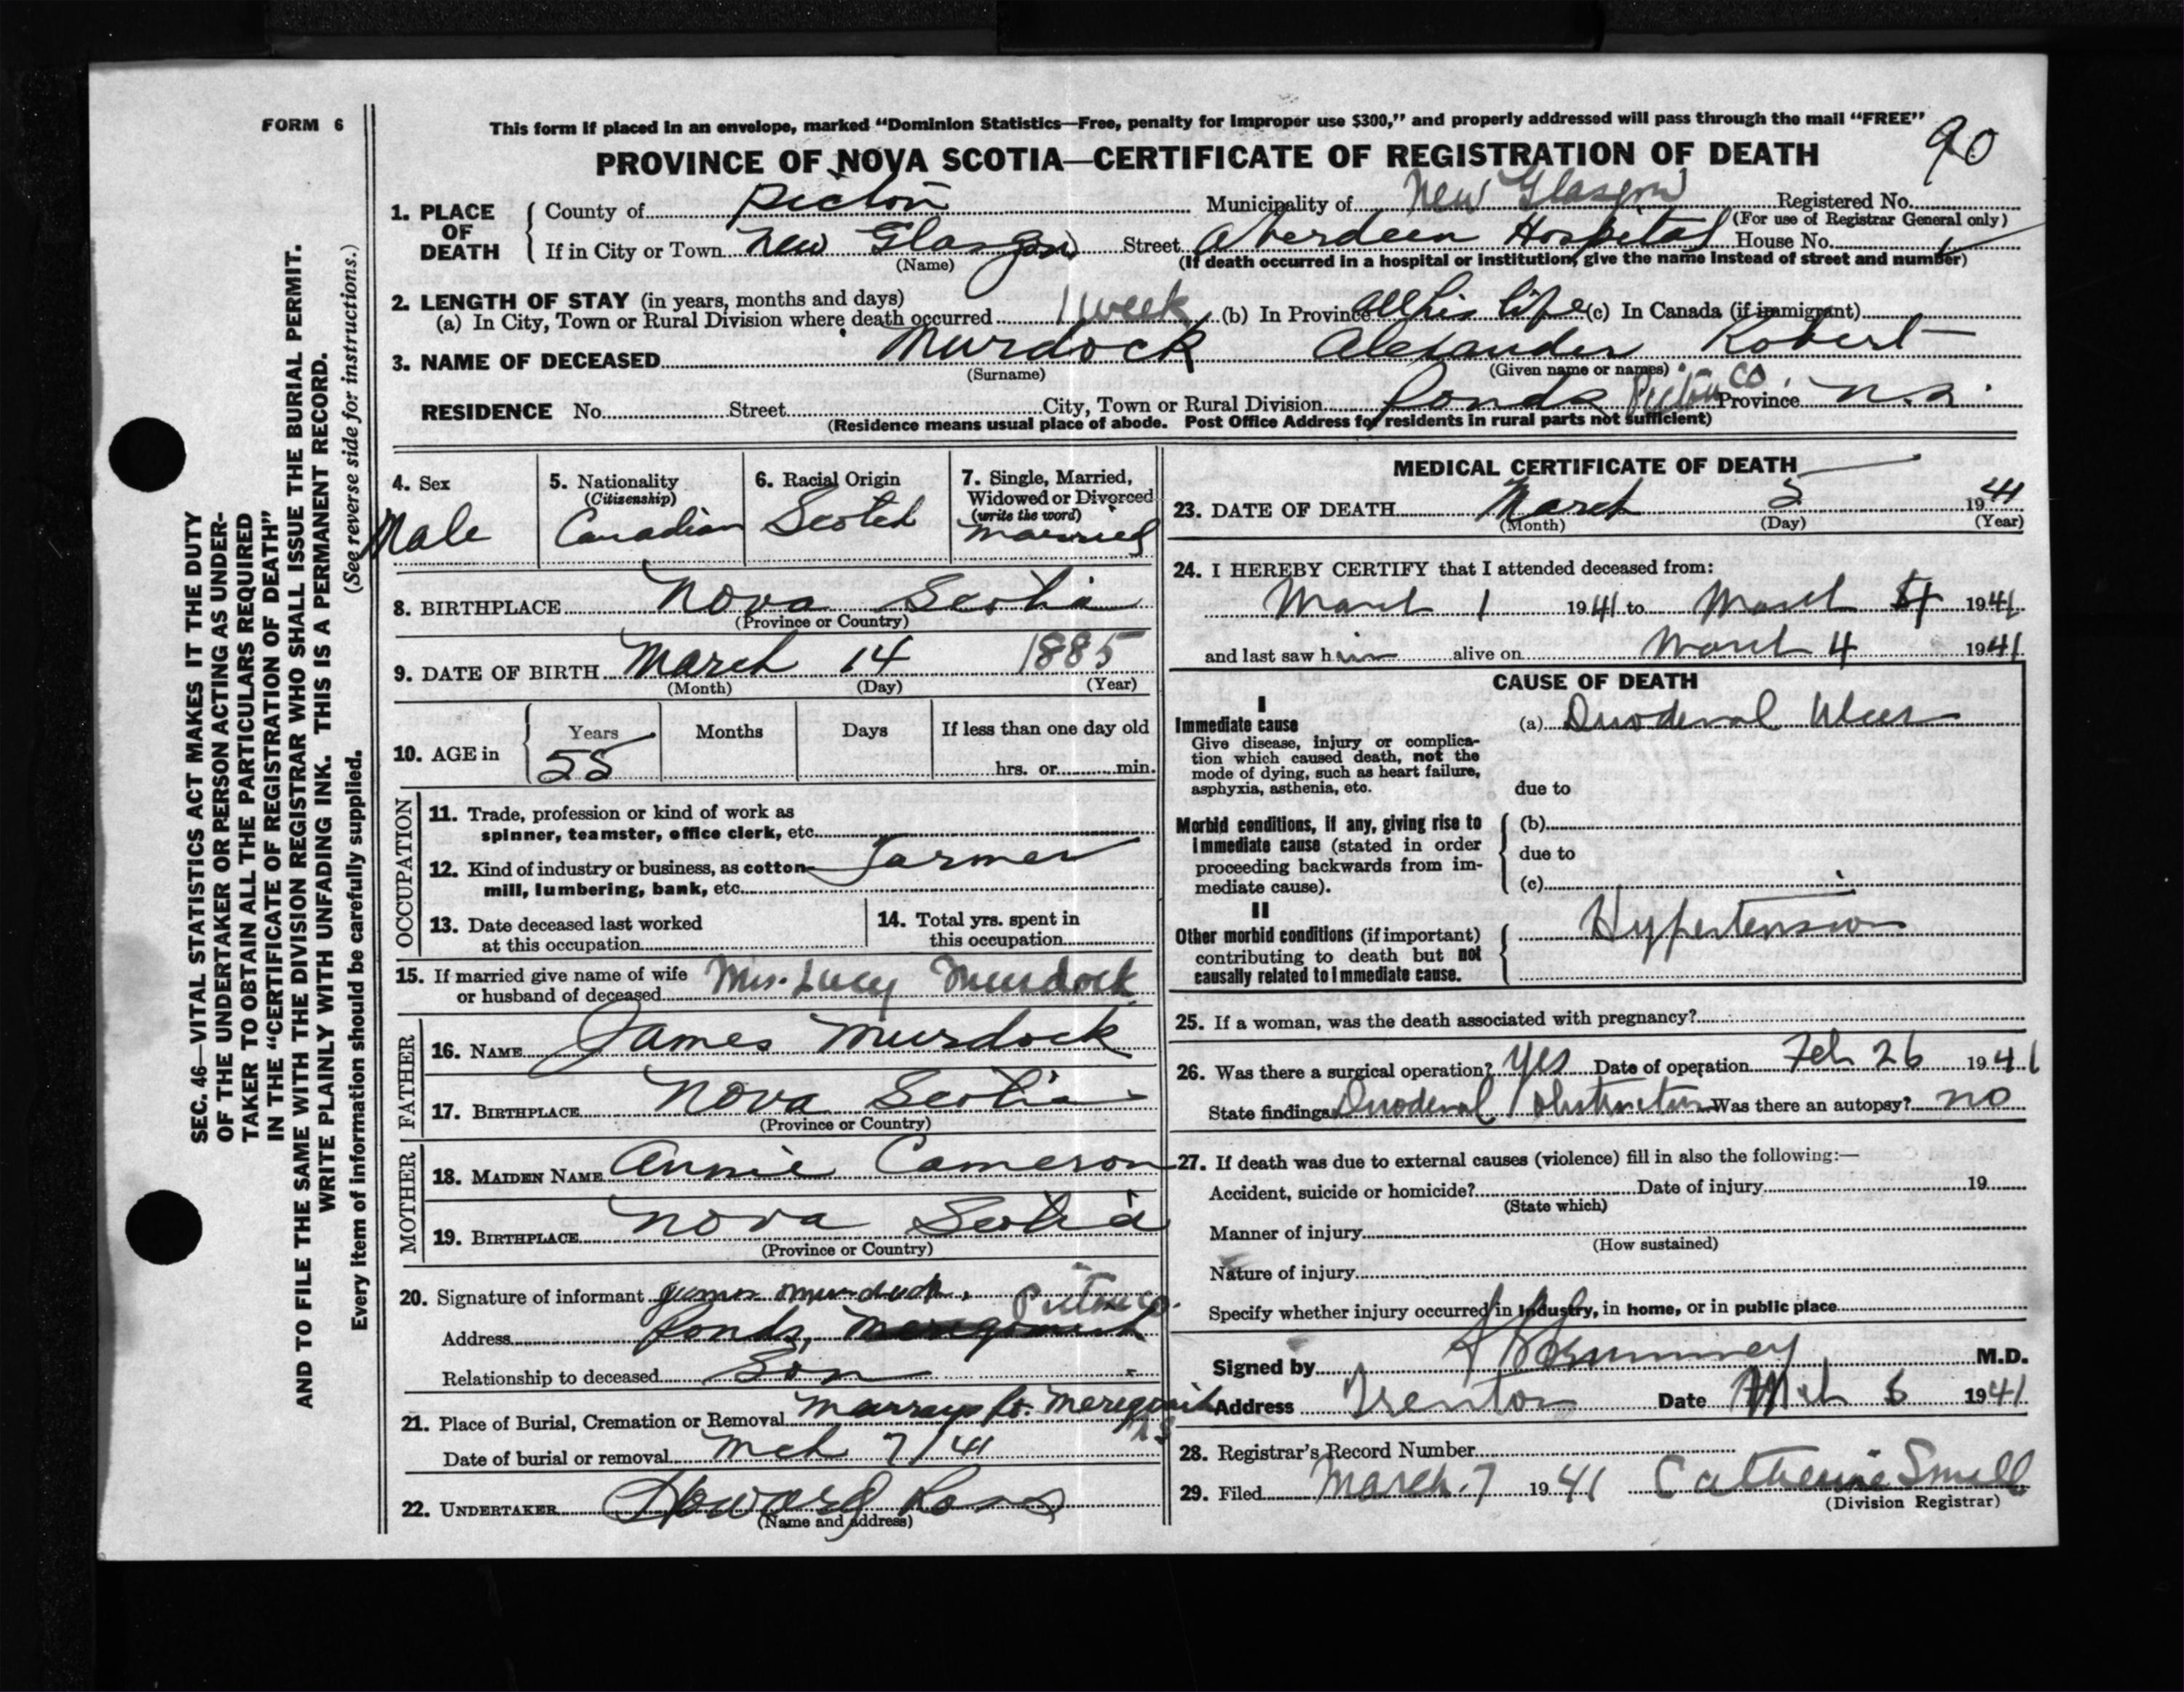 FORM 6
This form if placed in an envelope, marked "Dominion Statistics—Free, penalty for improper use $300," and properly addressed will pass through the mail "FREE"
90
PROVINCE OF NOVA SCOTIA—CERTIFICATE OF REGISTRATION OF DEATH
1. PLACE OF DEATH County of Pictou Municipality of New Glasgow Registered No.
(For use of Registrar General only)
If in City or Town New Glasgow Street Aberdeen Hospital House No.
(Name) (If death occurred in a hospital or institution, give the name instead of street and number)
2. LENGTH OF STAY (in years, months and days)
(a) In City, Town or Rural Division where death occurred 1 week (b) In Province all his life (c) In Canada (if immigrant)
3. NAME OF DECEASED Murdock Alexander Robert
(Surname) (Given name or names)
RESIDENCE No. Street City, Town or Rural Division Ponds Pictou Co. Province N.S.
(Residence means usual place of abode. Post Office Address for residents in rural parts not sufficient)
4. Sex 5. Nationality (Citizenship) 6. Racial Origin 7. Single, Married, Widowed or Divorced (write the word)
Male Canadian Scotch married
8. BIRTHPLACE Nova Scotia
(Province or Country)
9. DATE OF BIRTH March 14 1885
(Month) (Day) (Year)
10. AGE in Years Months Days If less than one day old
55 hrs. or min.
OCCUPATION
11. Trade, profession or kind of work as
spinner, teamster, office clerk, etc.
12. Kind of industry or business, as cotton Farmer
mill, lumbering, bank, etc.
13. Date deceased last worked
at this occupation
14. Total yrs. spent in
this occupation
15. If married give name of wife
or husband of deceased Mrs. Lucy Murdock
FATHER
16. NAME James Murdock
17. BIRTHPLACE Nova Scotia
(Province or Country)
MOTHER
18. MAIDEN NAME Annie Cameron
19. BIRTHPLACE Nova Scotia
(Province or Country)
20. Signature of informant James Murdock. Pictou Co.
Address Ponds, Merigomish
Relationship to deceased Son
21. Place of Burial, Cremation or Removal Murrays Pt. Merigomish NS
Date of burial or removal Mch 7/41
22. UNDERTAKER Howard Ross
(Name and address)
MEDICAL CERTIFICATE OF DEATH
23. DATE OF DEATH March 5 1941
(Month) (Day) (Year)
24. I HEREBY CERTIFY that I attended deceased from:
March 1 1941 to March 4 1941
and last saw him alive on March 4 1941
CAUSE OF DEATH
I
Immediate cause (a) Duodenal Ulcer
Give disease, injury or complica-
tion which caused death, not the
mode of dying, such as heart failure,
asphyxia, asthenia, etc. due to
Morbid conditions, if any, giving rise to (b)
immediate cause (stated in order due to
proceeding backwards from im-
mediate cause). (c)
II
Other morbid conditions (if important) Hypertension
contributing to death but not
causally related to immediate cause.
25. If a woman, was the death associated with pregnancy?
26. Was there a surgical operation? Yes Date of operation Feb 26 1941
State findings Duodenal Obstruction Was there an autopsy? no
27. If death was due to external causes (violence) fill in also the following:—
Accident, suicide or homicide? Date of injury 19
(State which)
Manner of injury
(How sustained)
Nature of injury
Specify whether injury occurred in industry, in home, or in public place
Signed by M.D.
Address Trenton Date Mch 1941
28. Registrar's Record Number
29. Filed March 7 1941 Catherine Small
(Division Registrar)
SEC. 46—VITAL STATISTICS ACT MAKES IT THE DUTY
OF THE UNDERTAKER OR PERSON ACTING AS UNDER-
TAKER TO OBTAIN ALL THE PARTICULARS REQUIRED
IN THE "CERTIFICATE OF REGISTRATION OF DEATH"
AND TO FILE THE SAME WITH THE DIVISION REGISTRAR WHO SHALL ISSUE THE BURIAL PERMIT.
WRITE PLAINLY WITH UNFADING INK. THIS IS A PERMANENT RECORD.
Every item of information should be carefully supplied. (See reverse side for instructions.)